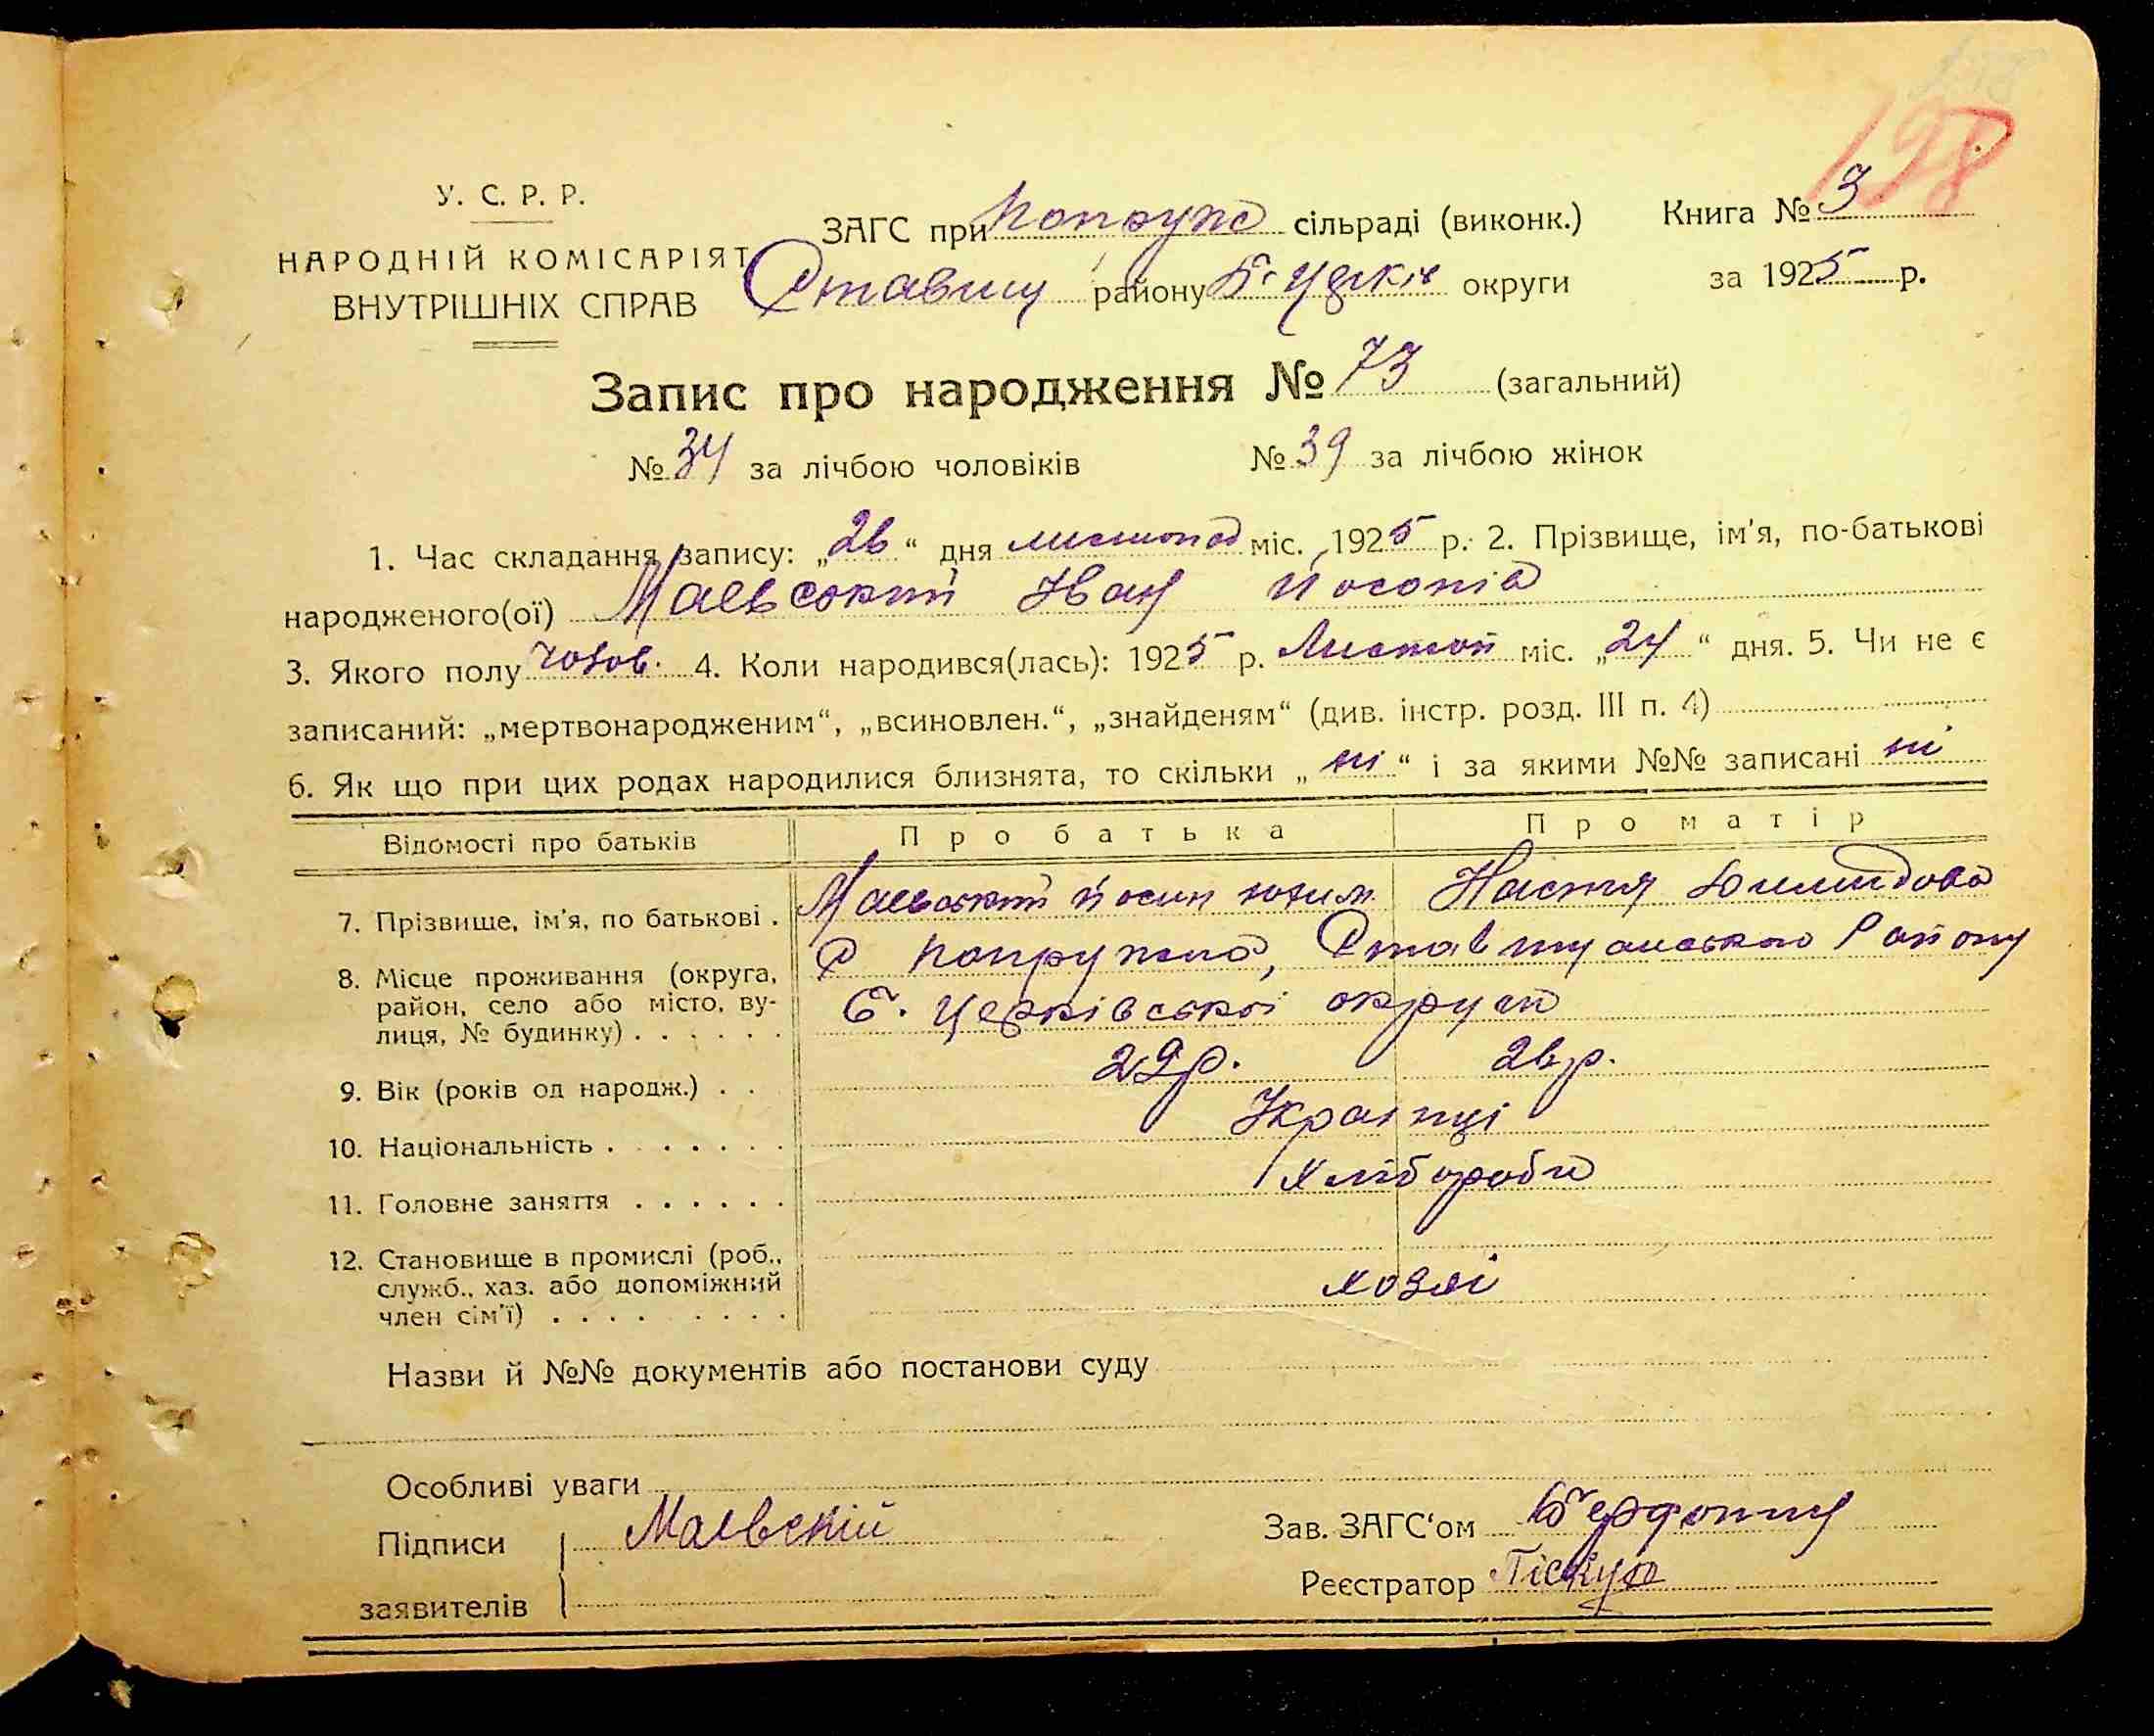 198
У. С. Р. Р.
НАРОДНІЙ КОМІСАРІЯТ
ВНУТРІШНІХ СПРАВ
ЗАГС при Попруж сільраді (виконк.) Книга № 3
Ставищ району Б-Церків округи за 1925 р.
Запис про народження № 73 (загальний)
№ 34 за лічбою чоловіків № 39 за лічбою жінок
1. Час складання запису: „26“ дня листопад міс. 1925 р. 2. Прізвище, ім'я, по-батькові
народженого(ої) Маевський Іван Йосопів
3. Якого полу чолов. 4. Коли народився(лась): 1925 р. Листоп міс. „24“ дня. 5. Чи не є
записаний: „мертвонародженим“, „всиновлен.“, „знайденям“ (див. інстр. розд. III п. 4)
6. Як що при цих родах народилися близнята, то скільки „ні“ і за якими №№ записані ні
Відомості про батьків Про батька Про матір
7. Прізвище, ім'я, по батькові . Маевський Йосип Юхим Настя
8. Місце проживання (округа, район, село або місто, вулиця, № будинку) . . . . . . С Попружна, Ставищанського Району
Б. Церківської округи
9. Вік (років од народж.) . . 29 р. 26 р.
10. Національність . . . . . . . Українці
11. Головне заняття . . . . . . Хлібороби
12. Становище в промислі (роб., служб., хаз. або допоміжний член сім'ї) . . . . . . . . хозяї
Назви й №№ документів або постанови суду
Особливі уваги
Підписи Маевскій Зав. ЗАГС'ом
заявителів Реєстратор Піскун